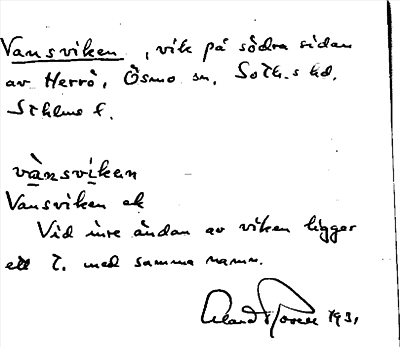 Vansviken, vik på södra sidan
av Herrö, Ösmo sn, Soth.s hd,
Sthlms l.
vànsviken
Vansviken ek
Vid inre ändan av viken ligger
ett t. med samma namn.
1931